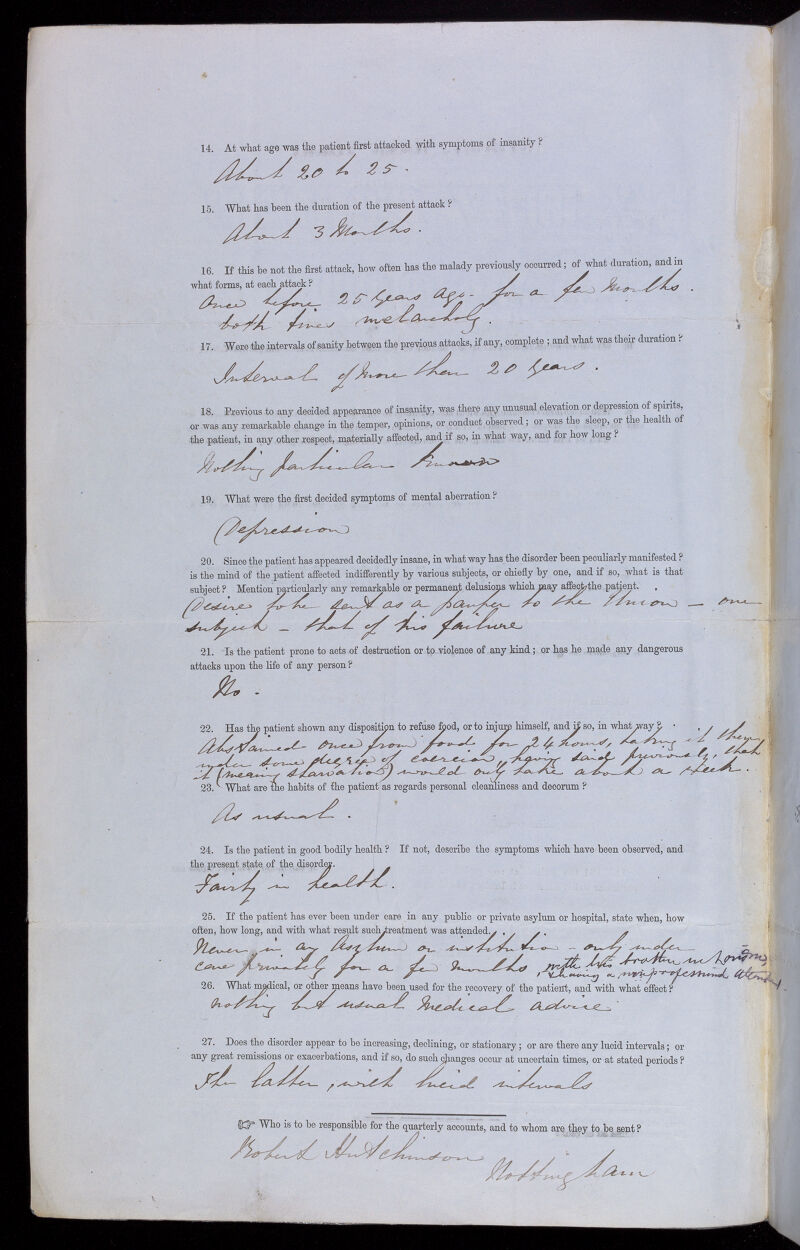 14. At what age was the patient first attacked with symptoms of insanity?
About 20 to 25.
15. What has been the duration of the present attack?
About 3 Months.
16. If this be not the first attack, how often has the malady previously occurred; of what duration, and in
what forms, at each attack?
Once before 25 years ago - for a few months.
both times melancholy.
17. Were the intervals of sanity between the previous attacks, if any, complete; and what was their duration?
Interval of More than 20 years.
18. Previous to any decided appearance of insanity, was there any unusual elevation or depression of spirits,
or was any remarkable change in the temper, opinions, or conduct observed; or was the sleep, or the health of
the patient, in any other respect, materially affected, and if so, in what way, and for how long?
Nothing particular known
19. What were the first decided symptoms of mental aberration?
Depression
20. Since the patient has appeared decidedly insane, in what way has the disorder been peculiarly manifested?
is the mind of the patient affected indifferently by various subjects, or chiefly by one, and if so, what is that
subject? Mention particularly any remarkable or permanent delusions which may affect the patient.
Desire to be sent as a pauper to the Union - one
subject - that of his failure
21. Is the patient prone to acts of destruction or to violence of any kind; or has he made any dangerous
attacks upon the life of any person?
No -
22. Has the patient shown any disposition to refuse food, or to injure himself, and if so, in what way?
Abstained once from food for 24 hours, taking it then
under some degree of coercion, having said previously, that
it (meaning starvation) would only take about a week.
23. What are the habits of the patient as regards personal cleanliness and decorum?
As usual.
24. Is the patient in good bodily health? If not, describe the symptoms which have been observed, and
the present state of the disorder.
Fairly in health.
25. If the patient has ever been under care in any public or private asylum or hospital, state when, how
often, how long, and with what result such treatment was attended.
Never in any Asylum or institution - only under
care privately for a few months, with his brother
& having a nonprofessional attendant.
26. What medical, or other means have been used for the recovery of the patient, and with what effect?
nothing but usual Medical advice
27. Does the disorder appear to be increasing, declining, or stationary; or are there any lucid intervals; or
any great remissions or exacerbations, and if so, do such changes occur at uncertain times, or at stated periods?
The latter, with lucid intervals
☞ Who is to be responsible for the quarterly accounts, and to whom are they to be sent?
Robert Hutchinson
Nottingham